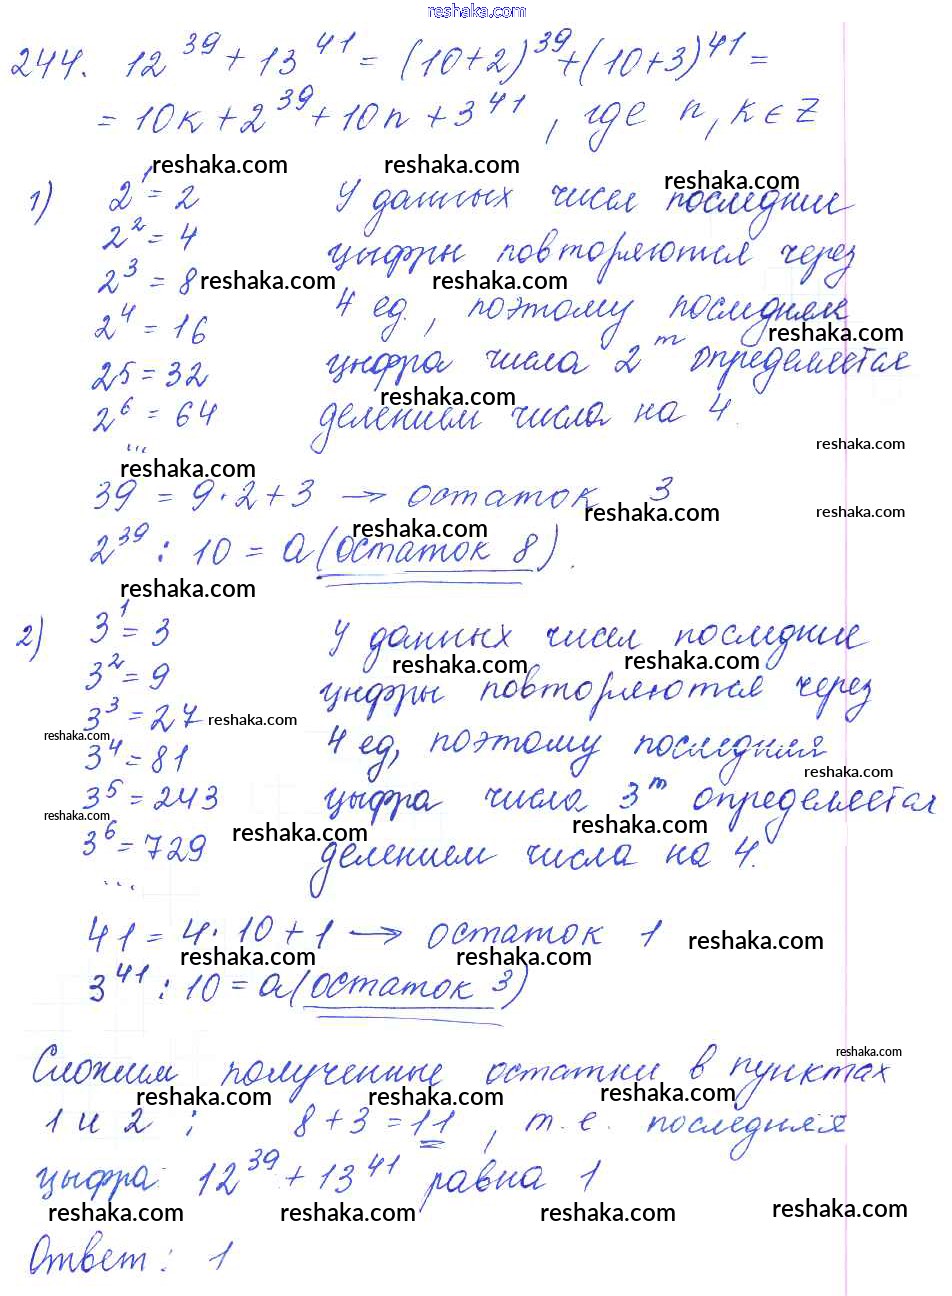 reshaka.com
244. 12^39 + 13^41 = (10+2)^39 + (10+3)^41 =
= 10k + 2^39 + 10n + 3^41, где n, k ∈ Z
reshaka.com reshaka.com reshaka.com
1) 2^1 = 2 У данных чисел последние
2^2 = 4 цифры повторяются через
2^3 = 8 reshaka.com reshaka.com
2^4 = 16 4 ед., поэтому последняя
reshaka.com
25 = 32 цифра числа 2^m определяется
reshaka.com
2^6 = 64 делением числа на 4.
... reshaka.com
reshaka.com
39 = 9·2+3 → остаток 3
reshaka.com reshaka.com
reshaka.com
2^39 : 10 = a (остаток 8).
reshaka.com
2) 3^1 = 3 У данных чисел последние
reshaka.com reshaka.com
3^2 = 9 цифры повторяются через
3^3 = 27 reshaka.com
reshaka.com
3^4 = 81 4 ед, поэтому последняя
reshaka.com
3^5 = 243 цифра числа 3^m определяется
reshaka.com reshaka.com
reshaka.com
3^6 = 729 делением числа на 4.
...
41 = 4·10+1 → остаток 1 reshaka.com
reshaka.com reshaka.com
3^41 : 10 = a (остаток 3)
reshaka.com
Сложим полученные остатки в пунктах
reshaka.com reshaka.com reshaka.com
1 и 2; 8+3=11, т.е. последняя
цифра 12^39 + 13^41 равна 1
reshaka.com reshaka.com reshaka.com reshaka.com
Ответ: 1